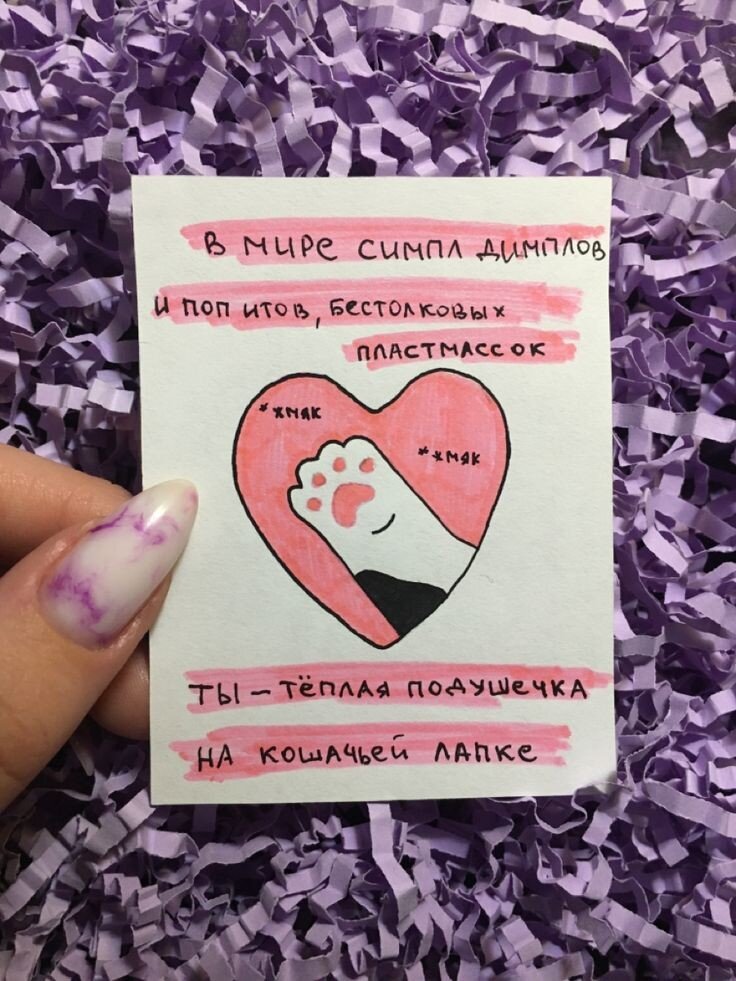 В МИРЕ СИМПЛ ДИМПЛОВ
И ПОП ИТОВ, БЕСТОЛКОВЫХ
ПЛАСТМАССОК
*ХМЯК
**ХМЯК
ТЫ – ТЁПЛАЯ ПОДУШЕЧКА
НА КОШАЧЬЕЙ ЛАПКЕ